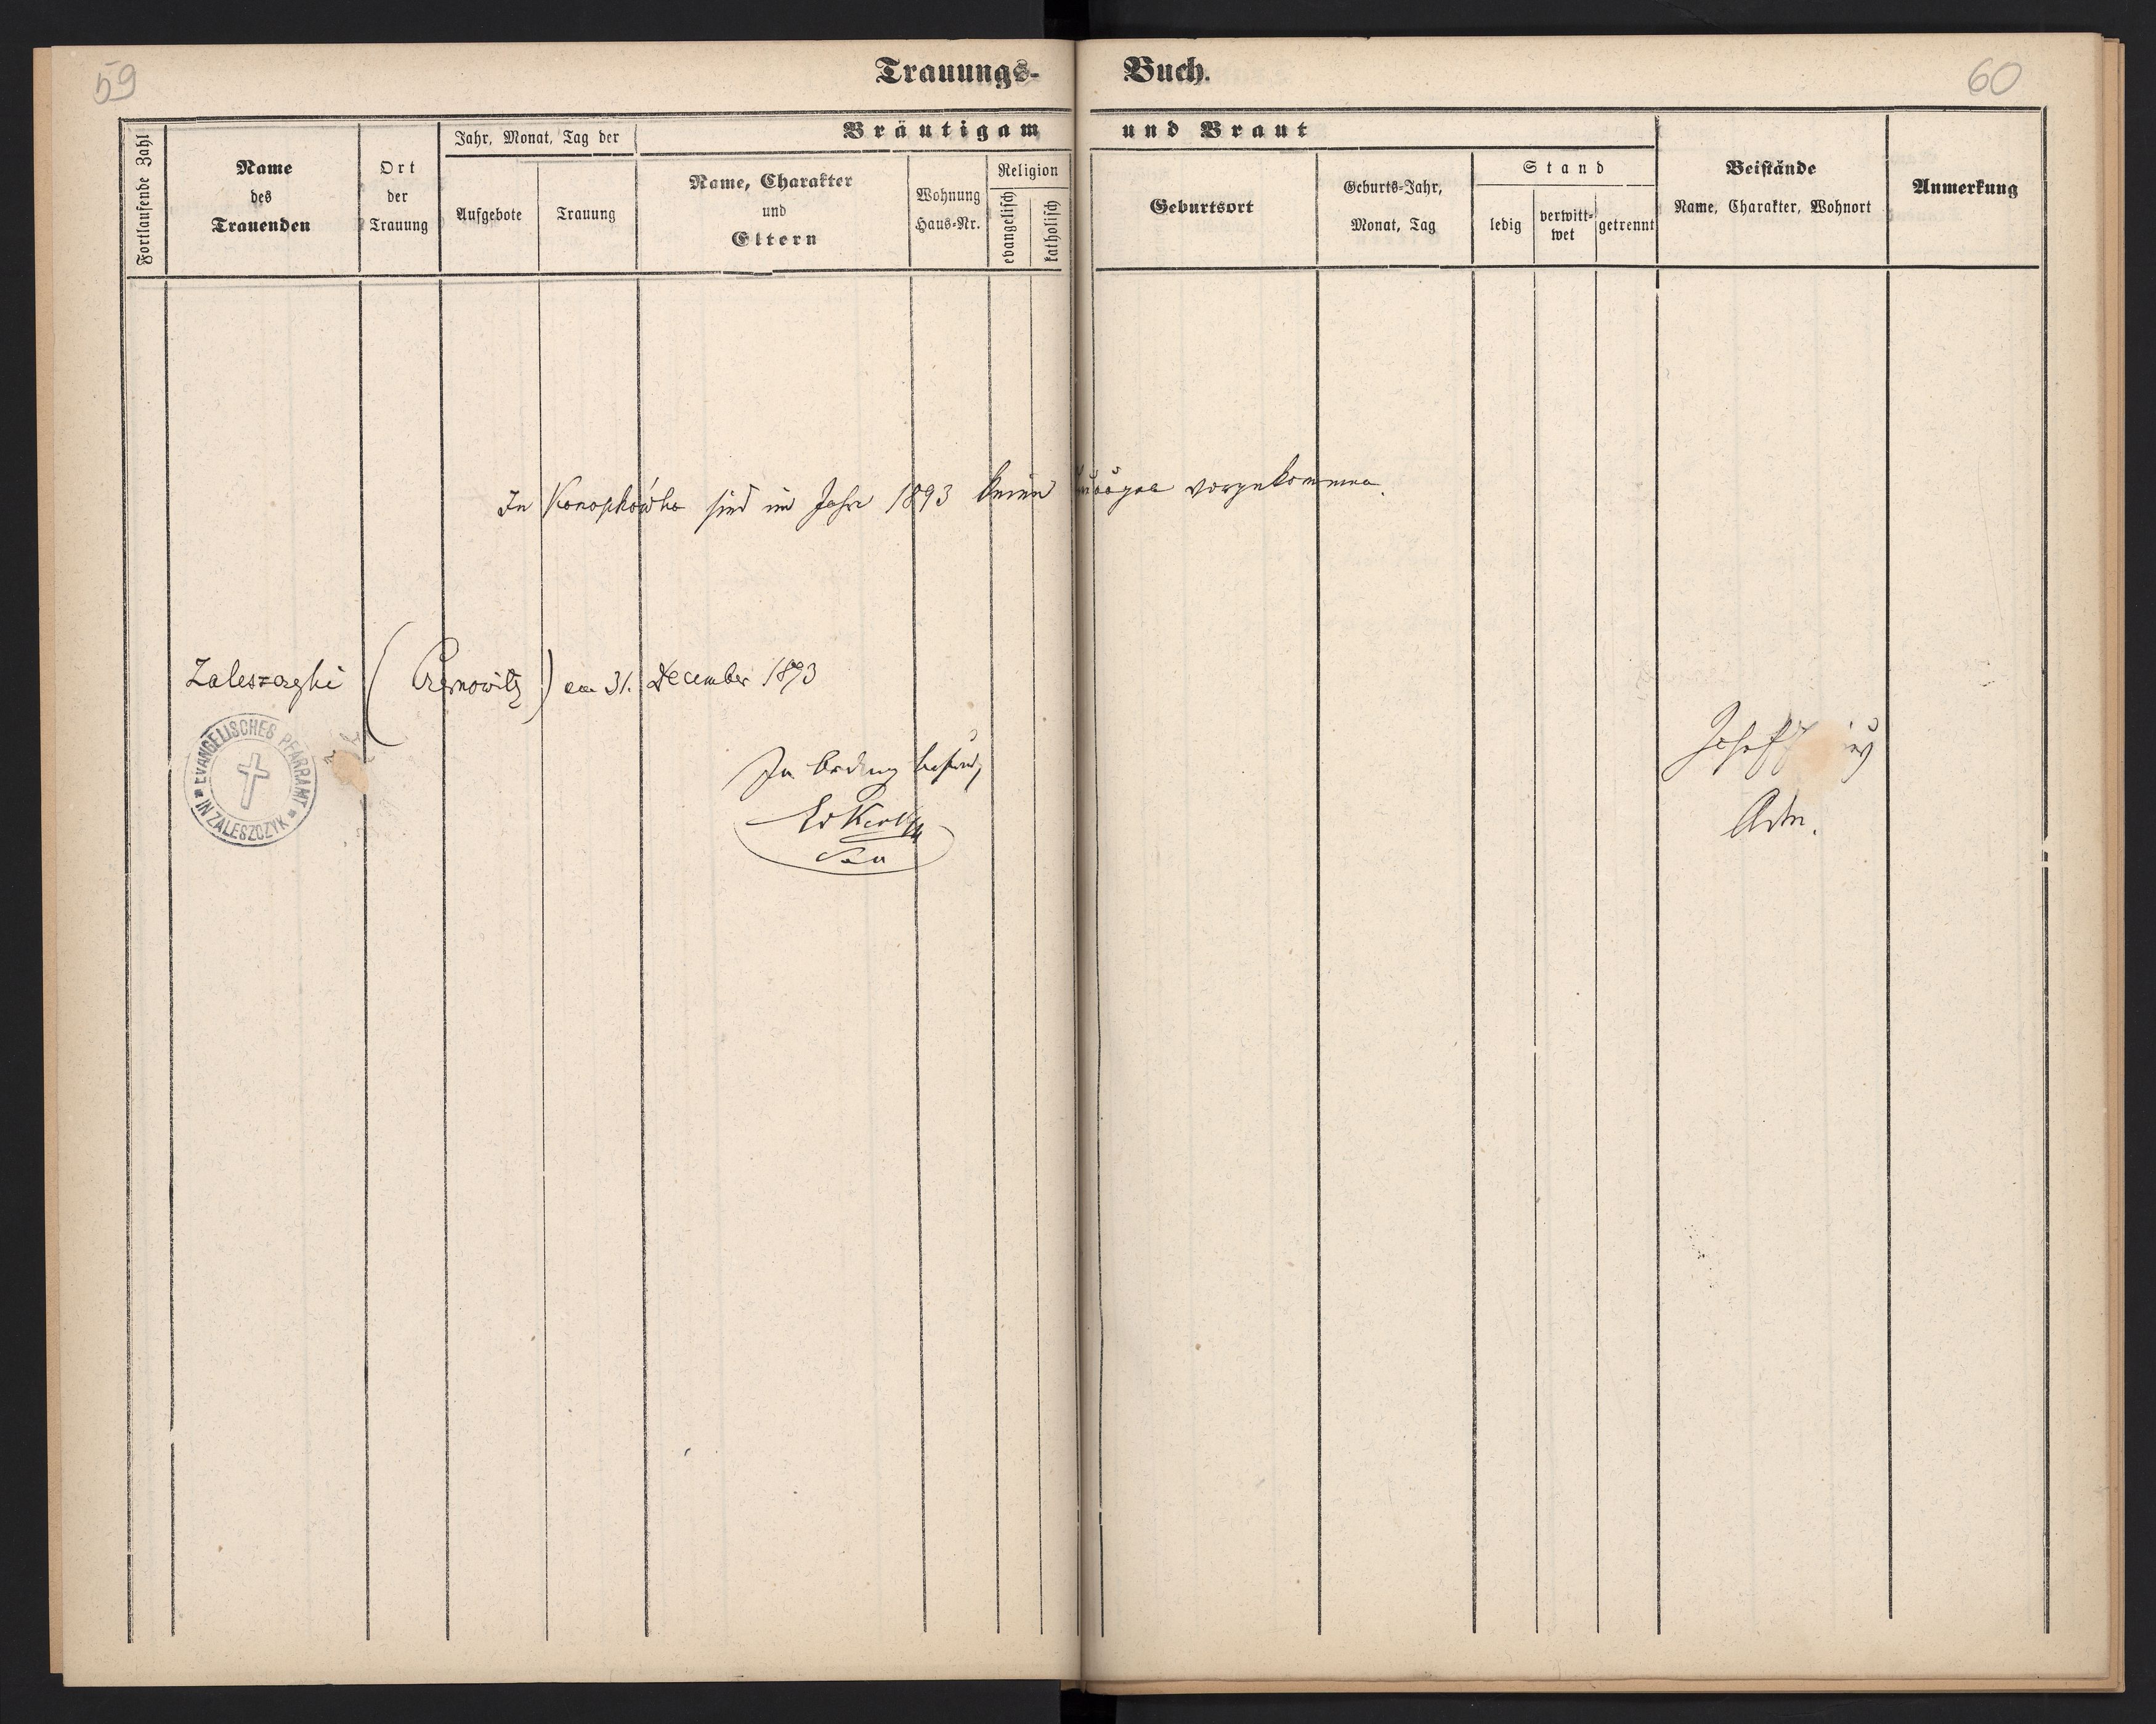 59
60
Trauungs- Buch.
Fortlaufende Zahl
Name
des
Trauenden
Ort
der
Trauung
Jahr, Monat, Tag der
Aufgebote
Trauung
Bräutigam und Braut
Name, Charakter
und
Eltern
Wohnung
Haus-Nr.
Religion
evangelisch
katholisch
Geburtsort
Geburts-Jahr,
Monat, Tag
Stand
ledig
verwitt-
wet
getrennt
Beistände
Name, Charakter, Wohnort
Anmerkung
In Konopkówka sind im Jahre 1893 keine vorgekommen.
Zaleszczyki (Czernowitz) am 31. December 1893
EVANGELISCHES PFARRAMT
IN ZALESZCZYK
In Ordnung befunden
Adm.